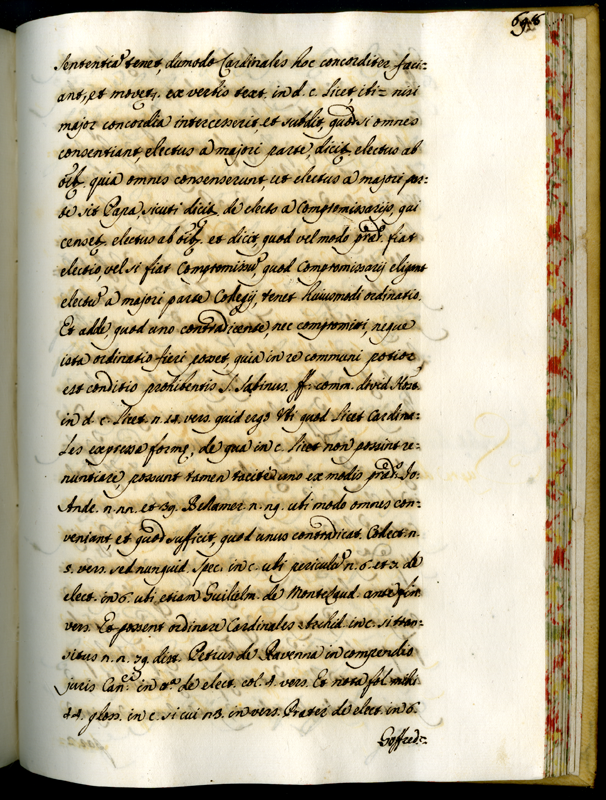 698
Sententia tenet, dumodo Cardinales hoc concorditer faci=
ant, et movetq. ex verbis text. in d. c. licet, ibi = nisi
major concordia intercesserit, et subdit, quod si omnes
consentiant, electus a majori parte, dicitq electus ab
oib9. quia omnes consenserunt, ut electus a majori par:
te sit Papa sicuti dicitq. de electo a Compromissarijs, qui
censetq. electus ab oib9. et dicit, quod vel modo prad.o fiat
electio, vel si fiat Compromissu, quod Compromissarij eligant
electu a majori parte Collegij, tenet huiusmodi ordinatio.
Et adde, quod uno contradicente, nec compromitti, neque
ista ordinatio fieri potest, quia in re communi potior
est conditio prohibentis l. Sabinus. ff. comm. divid. Host.
in d. c. licet. n. 14. vers. quid ergo ubi quod licet Cardina=
les expressa forme, de qua in c. licet non possint re=
nuntiare, possunt tamen tacite uno ex modis prad.s Jo:
Andr. n. nn. et 39. Bellamer. n. 29. ubi modo omnes con=
veniant, et quod sufficit, quod unus contradicat. Collect. n.
3. vers. sed nunquid. Spec. in c. ubi periculu n. 6. et 7. de
elect. in 6. ubi etiam Guilielm. de Montelaud. ante fin.
vers. Et possent ordinare Cardinales Archid. in c. si tran=
situs n. n. 79. dist. Petrus de Ravenna in compendio
juris Can.ci in de elect. col. 4. vers. Et nota fol. mihi
44. gloss. in c. si cui n3. in vers. Prater de elect. in 6.
Goffred=